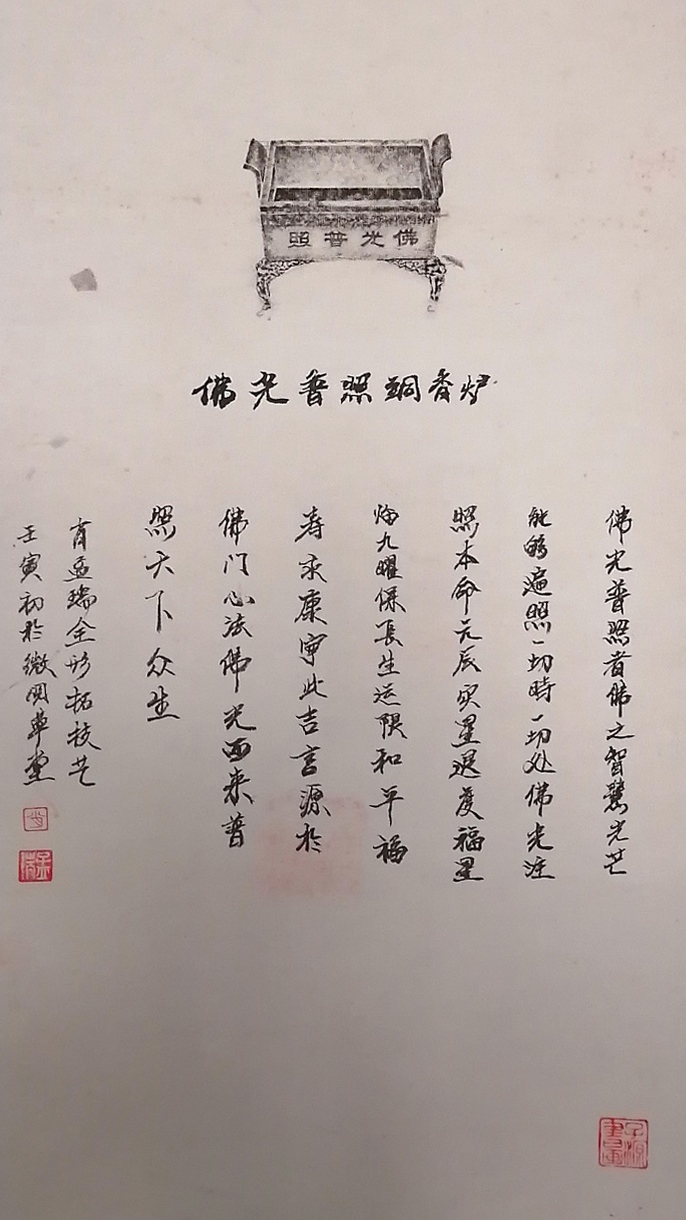 佛光普照
佛光普照铜香炉
佛光普照者佛之智慧光芒
能够遍照一切時一切处佛光注
照本命元辰灾星退度福星
临九曜保長生运限和平福
寿永康寧此吉言源於
佛门心法佛光西来普
照天下众生
肖孟瑞全形拓技艺
壬寅初於微閒草堂